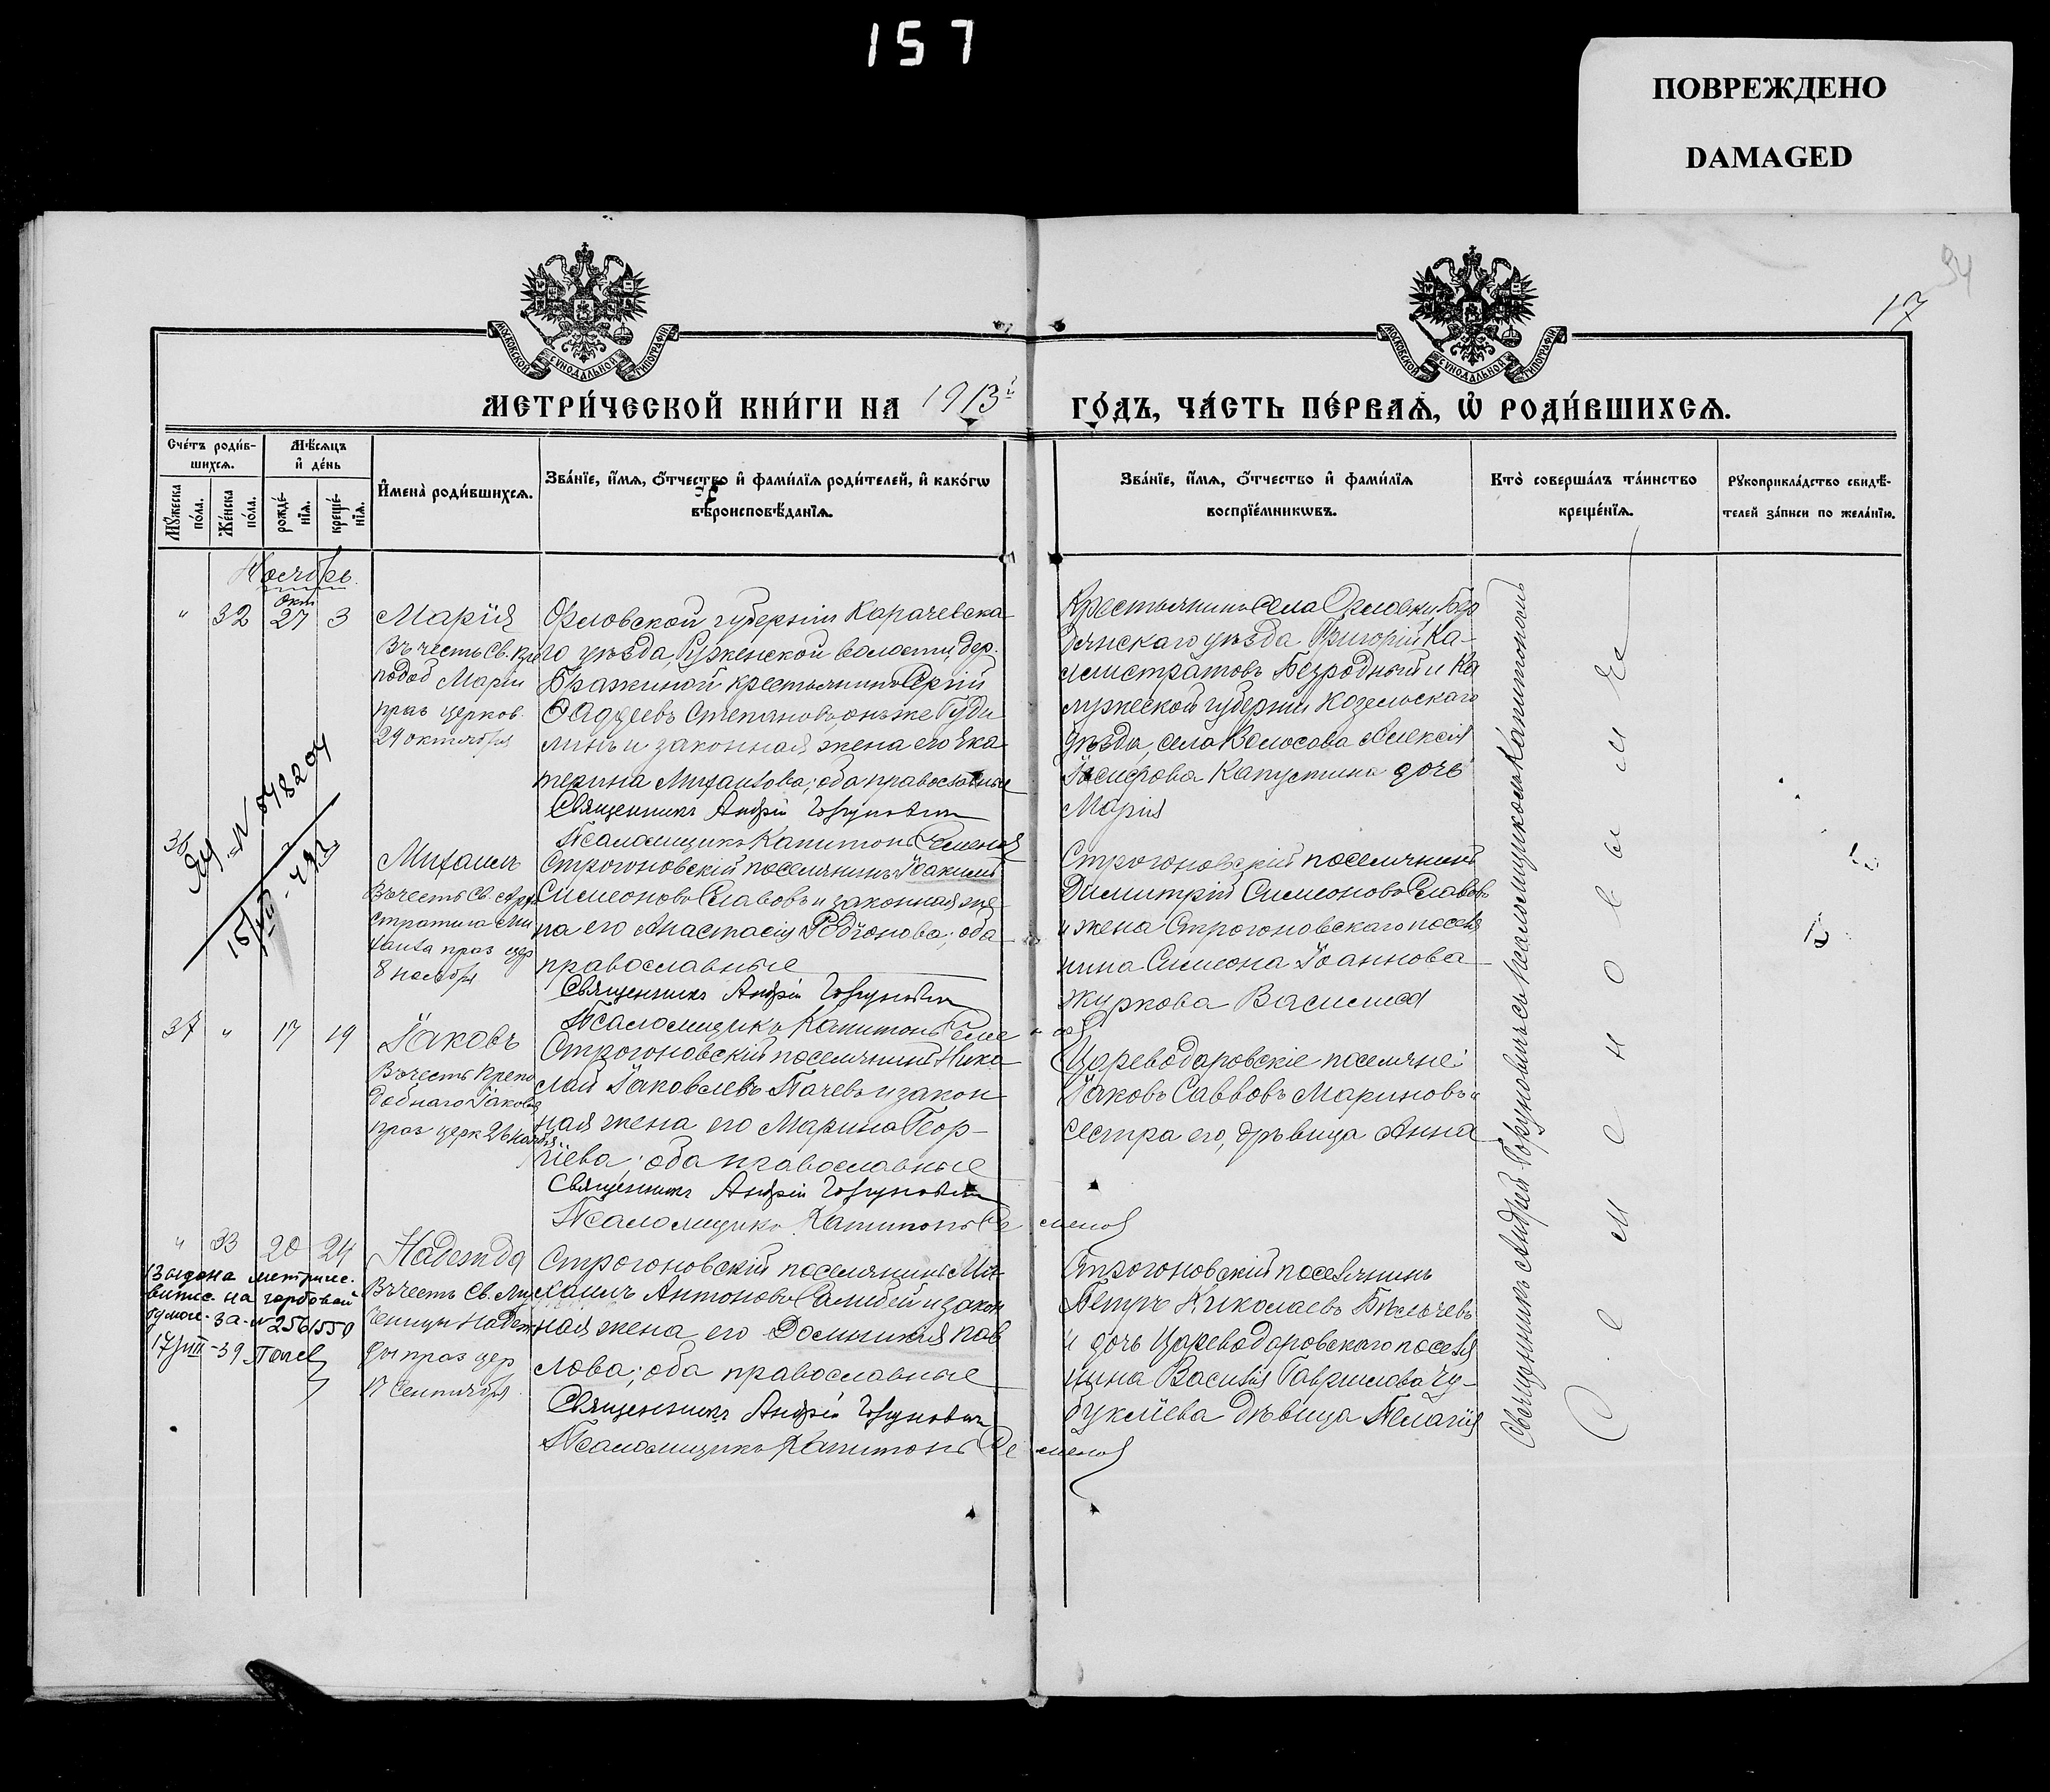 157
ПОВРЕЖДЕНО
DAMAGED
94
17
МОСКОВСКОЙ СѴНОДАЛЬНОЙ ТИПОГРАФІИ
МОСКОВСКОЙ СѴНОДАЛЬНОЙ ТИПОГРАФІИ
МЕТРИ́ЧЕСКОЙ КНИ́ГИ НА 1913й ГО́ДЪ, ЧА́СТЬ ПЕ́РВАѦ, Ѡ҆ РОДИ́ВШИХСѦ.
Сче́тъ роди́в-
шихсѧ.
Мѣ́сѧцъ
и҆ де́нь
Мꙋ́жеска
по́ла.
Же́нска
по́ла.
рожде́-
нїѧ.
креще́-
нїѧ.
И҆мена̀ роди́вшихсѧ.
Зва́нїе, и҆́мѧ, ѻ҆́тчество и҆ фами́лїѧ роди́телей, и҆ како́гѡ
вѣроисповѣ́данїѧ.
Зва́нїе, и҆́мѧ, ѻ҆́тчество и҆ фами́лїѧ
воспрїе́мникѡвъ.
Кто̀ соверша́лъ та́инство
креще́нїѧ.
Рꙋкоприкла́дство свидѣ́-
телей за́писи по жела́нїю.
Ноябрь.
Окт
" 32 27 3
Марія
Въ честь Св. Пре
подоб Маріи
праз церков.
29 октября
Орловской губерніи Карачевска-
го уѣзда, Руженской волости, дер.
Бражиной крестьянинъ Сергій
Ѳаддеевъ Степановъ, онъ же Гуди
линъ и законная жена его Ека
терина Михаилова; оба православные
Священникъ Андрій Горунович
Псаломщикъ Капитонъ Семенов
Крестьянинъ села Орловки Бер
дянскаго уѣзда Григорій Ка-
листратовъ Безродный и Ка
лужской губерніи Козельскаго
уѣзда, села Волосова Алексія
Іосифова Капустина дочь
Марія
36
N 578204
Михаилъ
Въ честь Св. Архи
стратига Ми
хаила праз цер
8 ноября
Строгоновскій поселянинъ Іоакимъ
Симеоновъ Славовъ и законная же
на его Анастасія Родіонова; оба
православные
Священникъ Андрій Горунович
Псаломщикъ Капитонъ Семенов
Строгоновскій поселянинъ
Димитрій Симеоновъ Славовъ
и жена Строгоновскаго поселя
нина Симеона Іоаннова
Журкова Василиса
37 " 17 19
Іаковъ
Въ честь Препо
добнаго Іакова
праз церк 26 ноября
Строгоновскій поселянинъ Нико-
лай Іаковлевъ Пачевъ и закон
ная жена его Марина Геор-
гіева; оба православные
Священникъ Андрій Горунович
Псаломщикъ Капитонъ Семенов
Цареводаровскіе поселяне:
Іаковъ Саввовъ Мариновъ и
сестра его, дѣвица Анна
" 33 20 24
Выдана метриче.
выпис. на гербовой
бумаге за N 2561550
17/VIII-39
Надежда
Въ честь Св. Му
ченицы Надеж
ды праз цер
17 Сентября
Строгоновскій поселянинъ Ми-
хаилъ Антоновъ Салибей и закон
ная жена его Домникія Пав
лова; оба православные
Священникъ Андрій Горунович
Псаломщикъ Капитонъ Семенов
Строгоновскій поселянинъ
Петръ Николаевъ Бѣльчевъ
и дочь Цареводаровскаго поселя
нина Василія Гаврилова Чу-
буклiева дѣвица Пелагія
Священникъ Андрей Горуновичъ съ псаломщикомъ Капитономъ
Семеновымъ